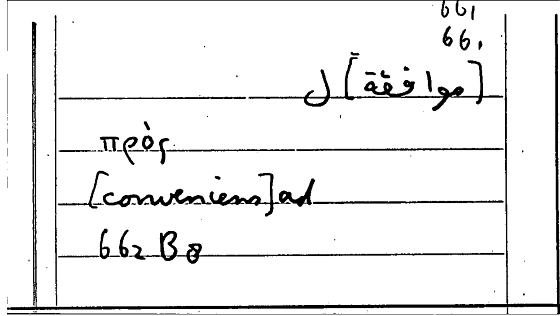 661
661
[موافقة] ل
πρὸς
[conveniens] ad
662 B 8